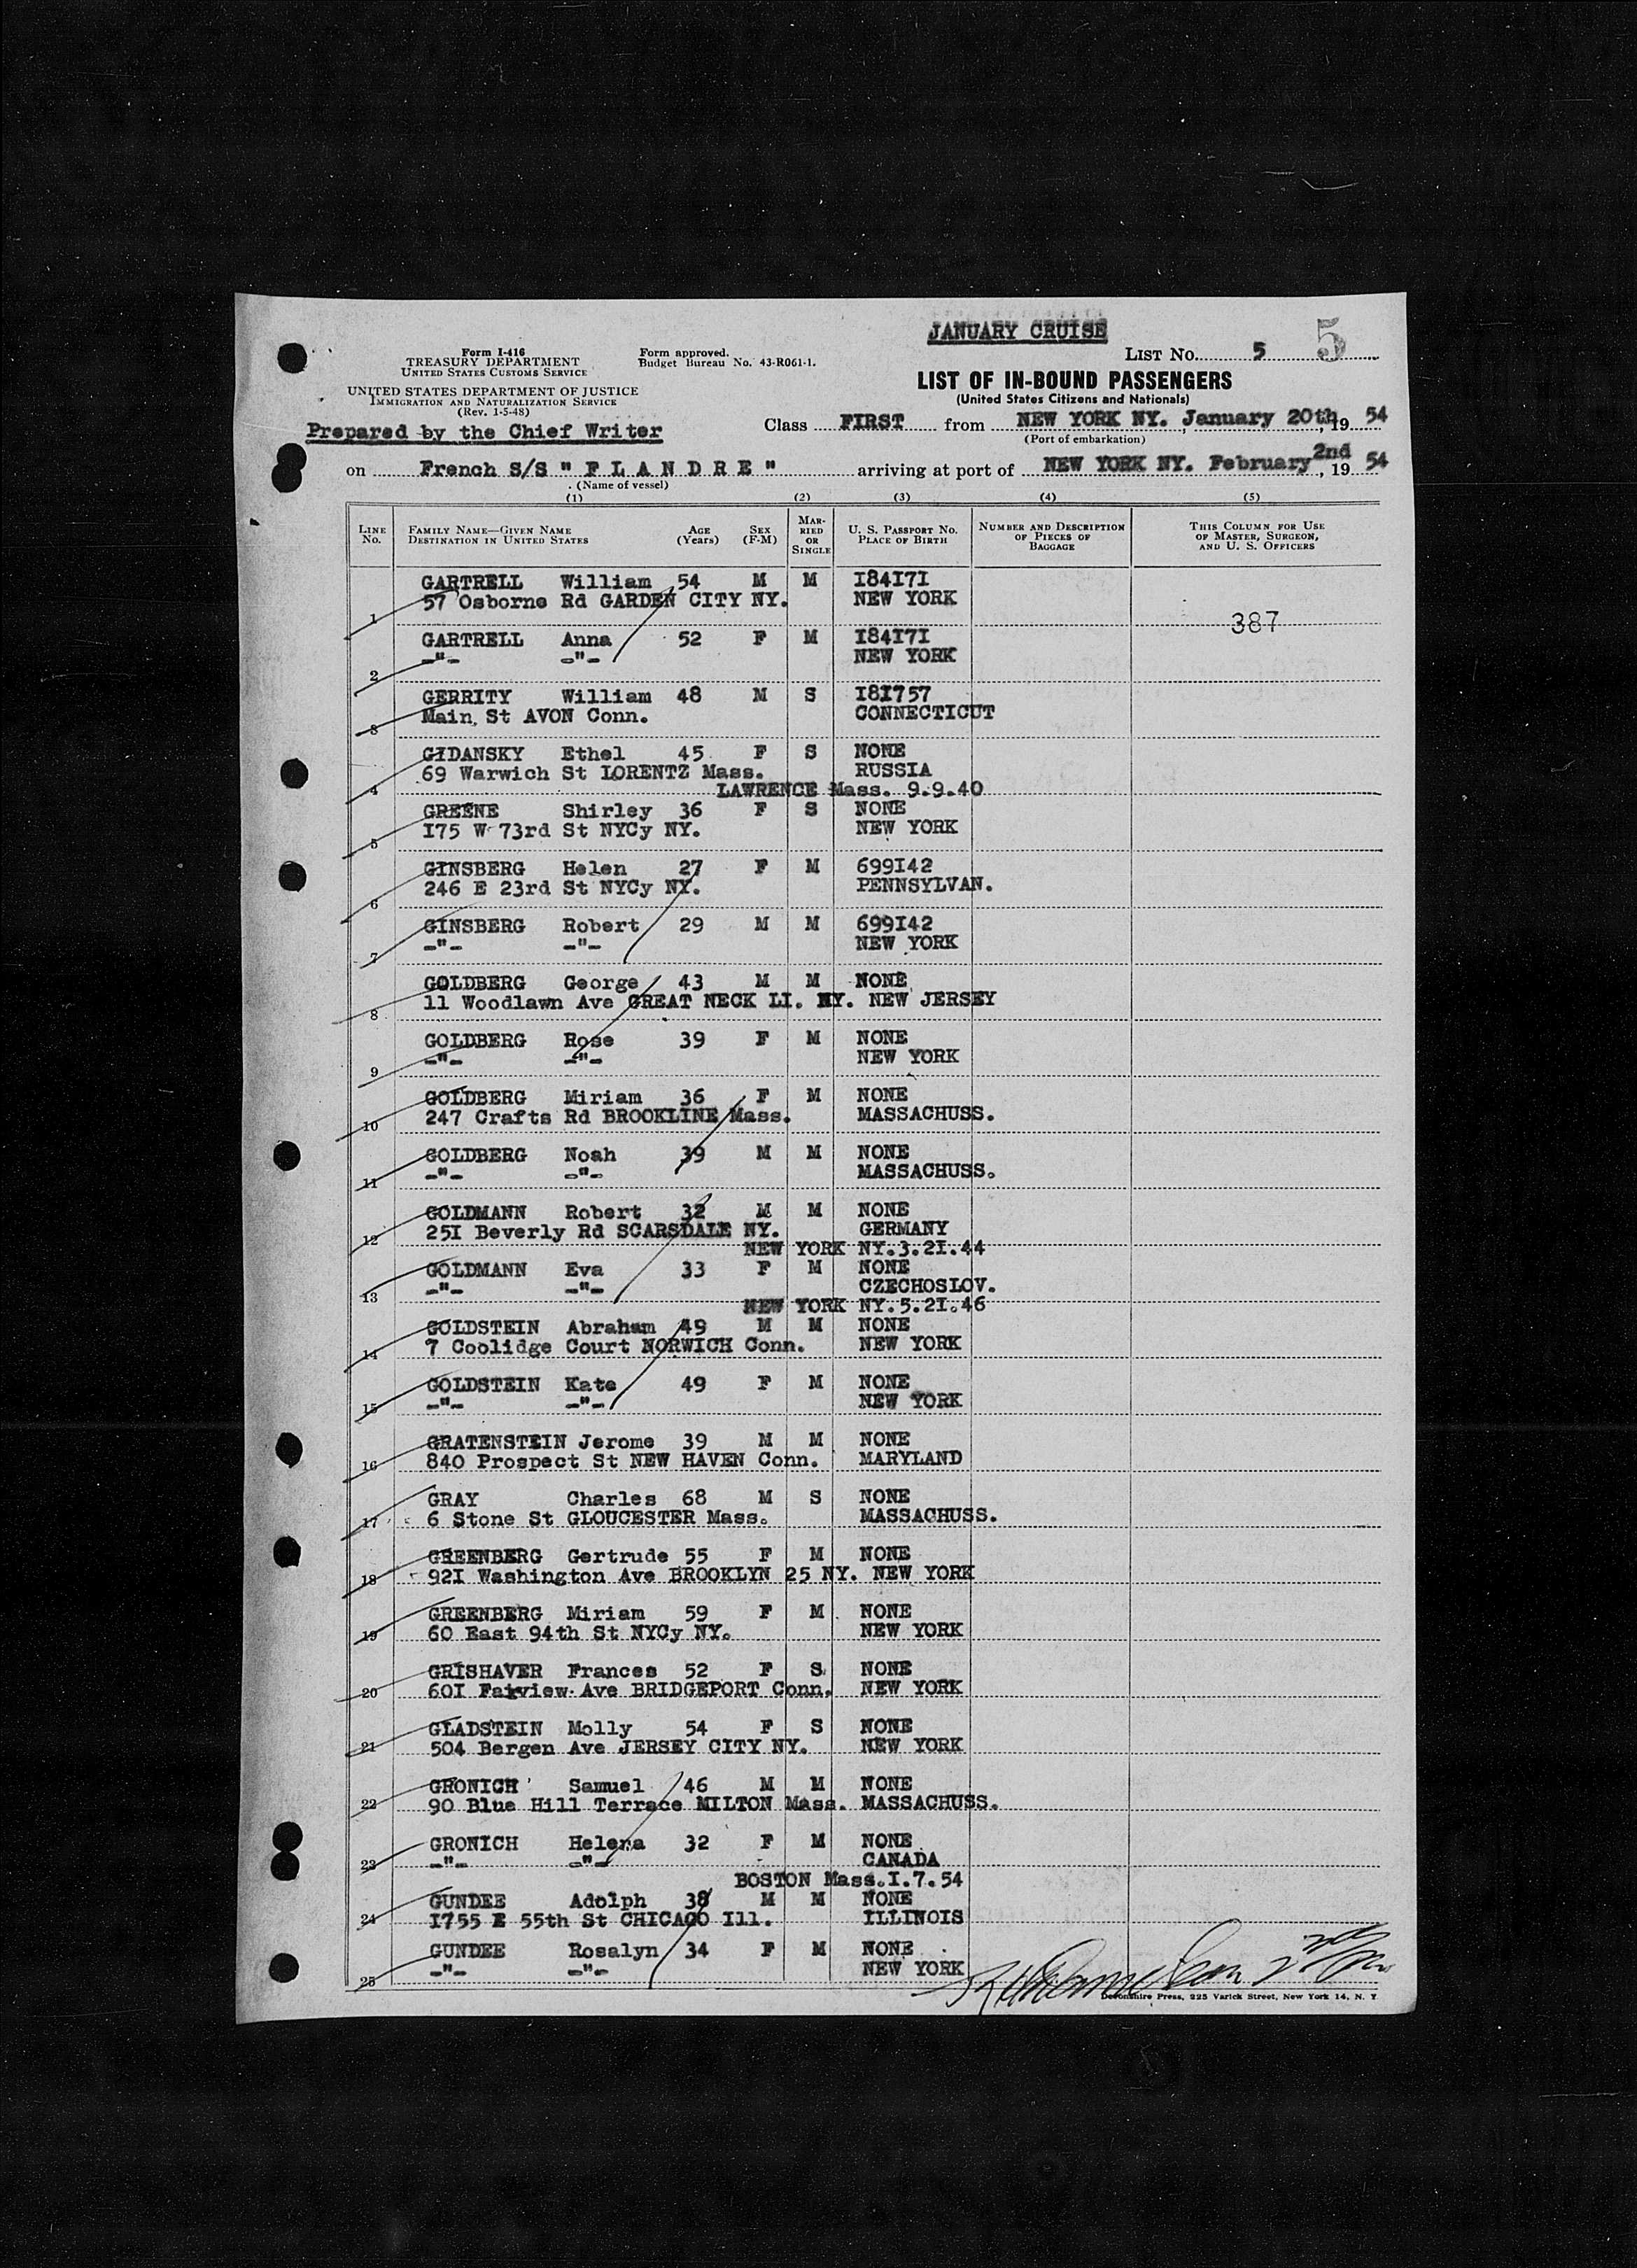 JANUARY CRUISE
Form I-416
TREASURY DEPARTMENT
UNITED STATES CUSTOMS SERVICE
Form approved.
Budget Bureau No. 43-R061-1.
LIST NO. 5 5
UNITED STATES DEPARTMENT OF JUSTICE
IMMIGRATION AND NATURALIZATION SERVICE
(Rev. 1-5-48)
LIST OF IN-BOUND PASSENGERS
(United States Citizens and Nationals)
Prepared by the Chief Writer
Class FIRST from NEW YORK NY. January 20th, 19 54
(Port of embarkation)
on French S/S " F L A N D R E " arriving at port of NEW YORK NY. February 2nd, 19 54
(Name of vessel)
(1) (2) (3) (4) (5)
LINE No. FAMILY NAME—GIVEN NAME DESTINATION IN UNITED STATES AGE (Years) SEX (F-M) MARRIED OR SINGLE U. S. PASSPORT No. PLACE OF BIRTH NUMBER AND DESCRIPTION OF PIECES OF BAGGAGE THIS COLUMN FOR USE OF MASTER, SURGEON, AND U. S. OFFICERS
GARTRELL William 54 M M I84I7I
1 57 Osborne Rd GARDEN CITY NY. NEW YORK
387
GARTRELL Anna 52 F M I84I7I
2 -"- -"- NEW YORK
GERRITY William 48 M S I8I757
3 Main, St AVON Conn. CONNECTICUT
GIDANSKY Ethel 45 F S NONE
4 69 Warwich St LORENTZ Mass. RUSSIA
LAWRENCE Mass. 9.9.40
GREENE Shirley 36 F S NONE
5 I75 W 73rd St NYCy NY. NEW YORK
GINSBERG Helen 27 F M 699I42
6 246 E 23rd St NYCy NY. PENNSYLVAN.
GINSBERG Robert 29 M M 699I42
7 -"- -"- NEW YORK
GOLDBERG George 43 M M NONE
8 11 Woodlawn Ave GREAT NECK LI. NY. NEW JERSEY
GOLDBERG Rose 39 F M NONE
9 -"- -"- NEW YORK
GOLDBERG Miriam 36 F M NONE
10 247 Crafts Rd BROOKLINE Mass. MASSACHUSS.
GOLDBERG Noah 39 M M NONE
11 -"- -"- MASSACHUSS.
GOLDMANN Robert 32 M M NONE
12 25I Beverly Rd SCARSDALE NY. GERMANY
NEW YORK NY.3.2I.44
GOLDMANN Eva 33 F M NONE
13 -"- -"- CZECHOSLOV.
NEW YORK NY.5.2I.46
GOLDSTEIN Abraham 49 M M NONE
14 7 Coolidge Court NORWICH Conn. NEW YORK
GOLDSTEIN Kate 49 F M NONE
15 -"- -"- NEW YORK
GRATENSTEIN Jerome 39 M M NONE
16 840 Prospect St NEW HAVEN Conn. MARYLAND
GRAY Charles 68 M S NONE
17 6 Stone St GLOUCESTER Mass. MASSACHUSS.
GREENBERG Gertrude 55 F M NONE
18 92I Washington Ave BROOKLYN 25 NY. NEW YORK
GREENBERG Miriam 59 F M NONE
19 60 East 94th St NYCy NY. NEW YORK
GRISHAVER Frances 52 F S NONE
20 60I Fairview Ave BRIDGEPORT Conn. NEW YORK
GLADSTEIN Molly 54 F S NONE
21 504 Bergen Ave JERSEY CITY NY. NEW YORK
GRONICH Samuel 46 M M NONE
22 90 Blue Hill Terrace MILTON Mass. MASSACHUSS.
GRONICH Helena 32 F M NONE
23 -"- -"- CANADA
BOSTON Mass.I.7.54
GUNDEE Adolph 38 M M NONE
24 I755 E 55th St CHICAGO Ill. ILLINOIS
GUNDEE Rosalyn 34 F M NONE
25 -"- -"- NEW YORK
Devonshire Press, 225 Varick Street, New York 14, N. Y.